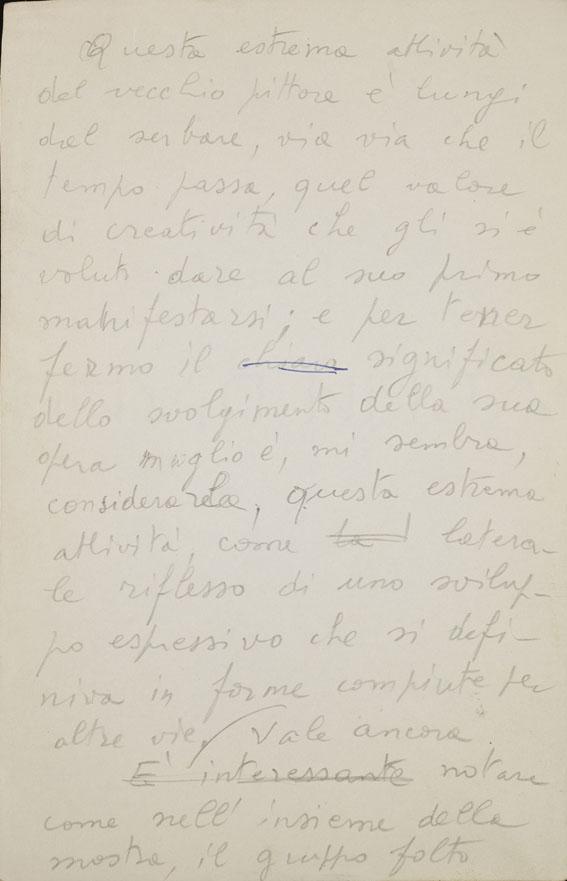 Questa estrema attività
del vecchio pittore è lungi
dal serbare, via via che il
tempo passa, quel valore
di creatività che gli si è
voluto dare al suo primo
manifestarsi; e per tener
fermo il chiaro significato
dello svolgimento della sua
opera meglio è, mi sembra,
considerarla, questa estrema
attività, come la latera-
le riflesso di uno svilup-
po espressivo che si defi-
niva in forme compiute per
altre vie. Vale ancora
E' interessante notare
come nell'insieme della
mostra, il gruppo folto